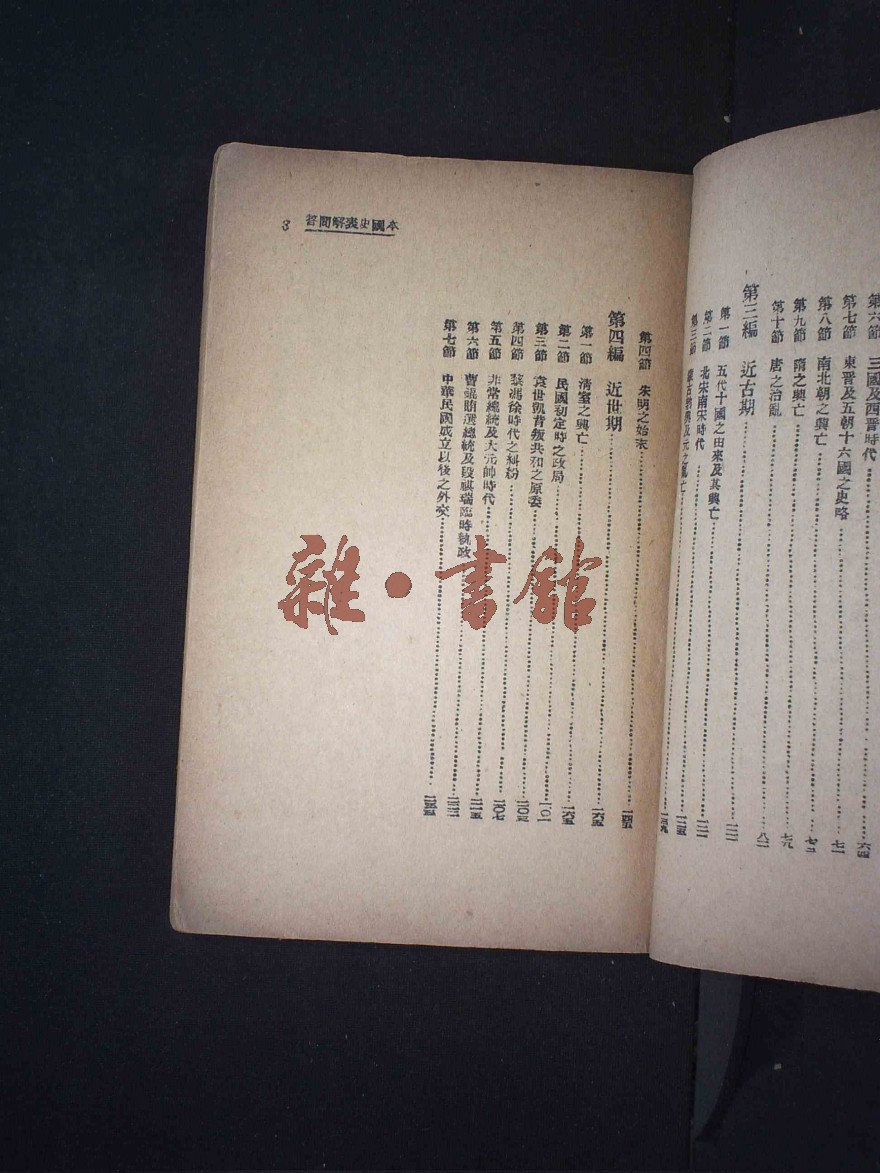 第六節 三國及西晉時代
第七節 東晉及五朝十六國之史略 七一
第八節 南北朝之興亡
第九節 隋之興亡 七九
第十節 唐之治亂 八二
第三編 近古期
第一節 五代十國之由來及其興亡
第二節 北宋南宋時代
第三節
本國史表解問答 3
第四節 朱明之始末 一四五
第四編 近世期 一六五
第一節 清室之興亡 一六五
第二節 民國初定時之政局
第三節 袁世凱背叛共和之原委
第四節 黎馮徐時代之糾紛 二〇七
第五節 非常總統及大元帥時代 二一五
第六節 曹錕賄選總統及段祺瑞臨時執政
第七節 中華民國成立以後之外交
雜·書館